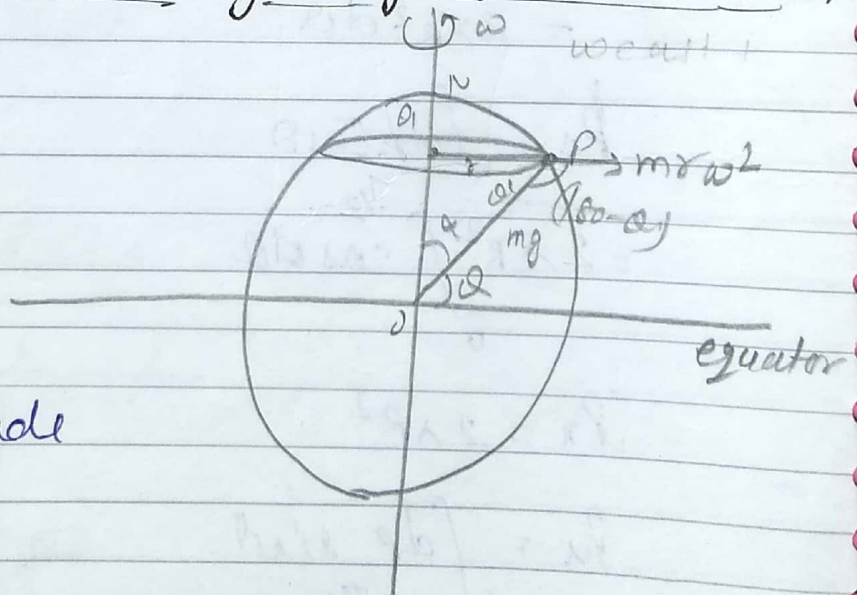 ω
N
O₁
P → mrω²
r
θ
(180-θ)
α
mg
θ
O
equator